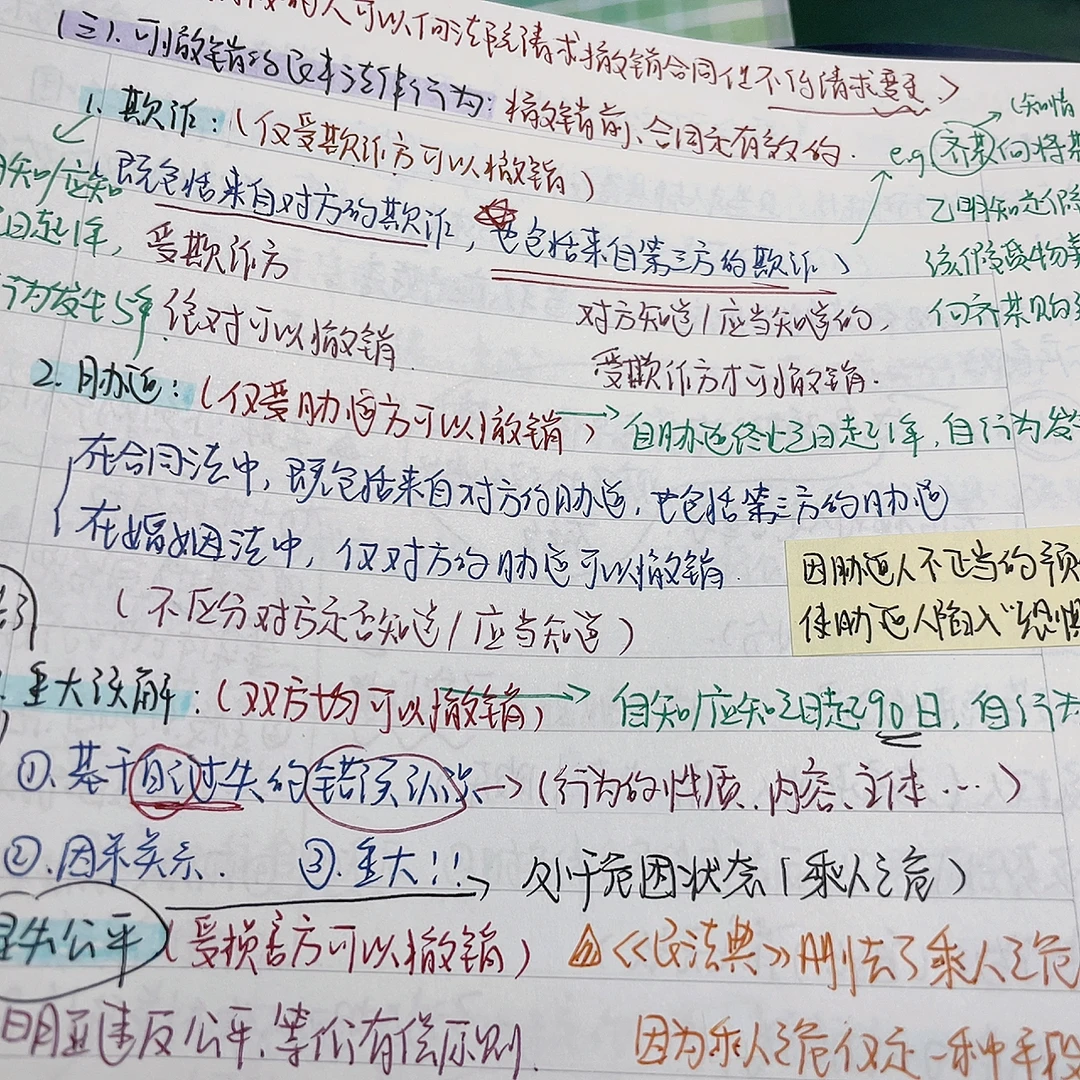 的人可以向法院请求撤销合同但不得请求变更)
(三).可撤销的民事法律行为:撤销前,合同是有效的.
1.欺诈:(仅受欺诈方可以撤销)
e.g 齐某向将某
(知情
明知/应知
既包括来自对方的欺诈,也包括来自第三方的欺诈)
乙明知是假
日起1年,
受欺诈方
该假货
行为发生5年
绝对可以撤销
对方知道/应当知道的,
向齐某购
受欺诈方才可撤销.
2.胁迫:(仅受胁迫方可以撤销)→自胁迫终止之日起1年,自行为发
在合同法中,既包括来自对方的胁迫,也包括第三方的胁迫
在婚姻法中,仅对方的胁迫可以撤销.
(不区分对方是否知道/应当知道)
因胁迫人不正当的预
使胁迫人陷入“恐惧
重大误解:(双方均可以撤销)→自知/应知之日起90日,自行为
①.基于自己过失的错误认识→(行为的性质、内容、主体…)
②.因果关系. ③.重大!!→处于危困状态(乘人之危)
显失公平(受损害方可以撤销) 《民法典》删去了乘人之危
明显违反公平、等价有偿原则.
因为乘人之危仅是一种手段